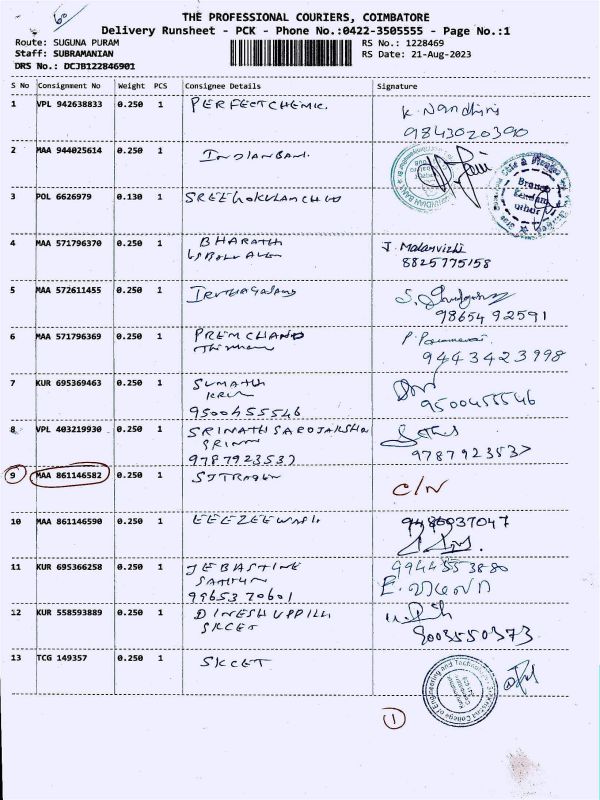 60
THE PROFESSIONAL COURIERS, COIMBATORE
Delivery Runsheet - PCK - Phone No.:0422-3505555 - Page No.:1
Route: SUGUNA PURAM
Staff: SUBRAMANIAN
DRS No.: DCJB122846901
RS No.: 1228469
RS Date: 21-Aug-2023
S No Consignment No Weight PCS Consignee Details Signature
1 VPL 942638833 0.250 1 PERFECTCHEMIC K. Nandhini
9843020390
2 MAA 944025614 0.250 1 INDIANBANK
3 POL 6626979 0.130 1 SREEGOKULAMCHIT
Branch
4 MAA 571796370 0.250 1 BHARATH J. Malarvizhi
8825775158
5 MAA 572611455 0.250 1
98654 92591
6 MAA 571796369 0.250 1 PREMCHAND
9443423998
7 KUR 695369463 0.250 1 SUMATHI
9500455546 9500455546
8 VPL 403219930 0.250 1 SRINATHSAROJAKSHA
9787923537 9787923537
9 MAA 861146582 0.250 1 C/N
10 MAA 861146590 0.250 1 EEEZEEWASH 9486037047
11 KUR 695366258 0.250 1 JEBASTINE 9944553880
9965370601
12 KUR 558593889 0.250 1 DINESHUPPILI
SKCET 9003550373
13 TCG 149357 0.250 1 SKCET
College of Engineering and Technology
1